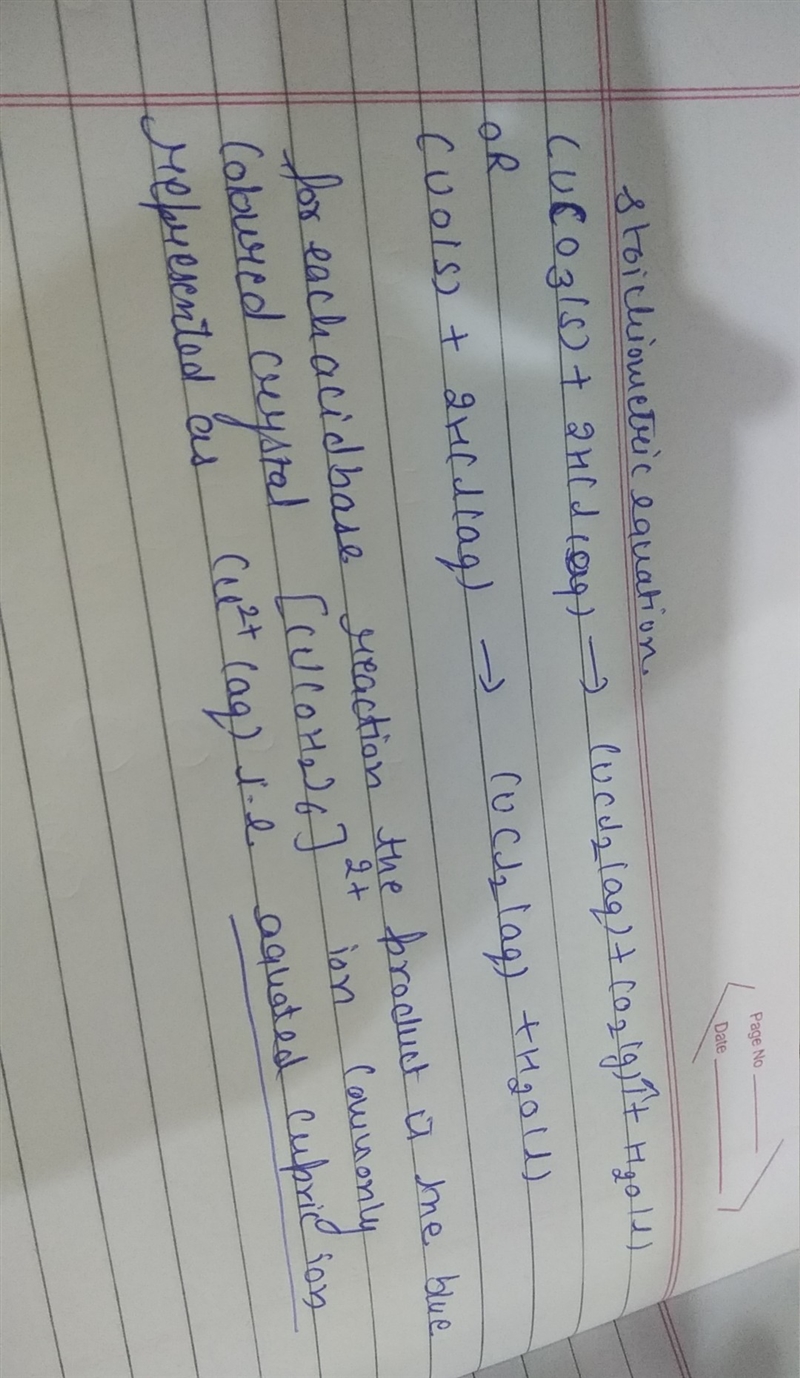 Page No
Date
Stoichiometric equation
CuCO3(s) + 2HCl(aq) → CuCl2(aq) + CO2(g)↑ + H2O(l)
OR
CuO(s) + 2HCl(aq) → CuCl2(aq) + H2O(l)
for each acid base reaction the product is the blue
Coloured crystal [Cu(OH2)6]2+ ion Commonly
represented as Cu2+(aq) i.e aquated cupric ion